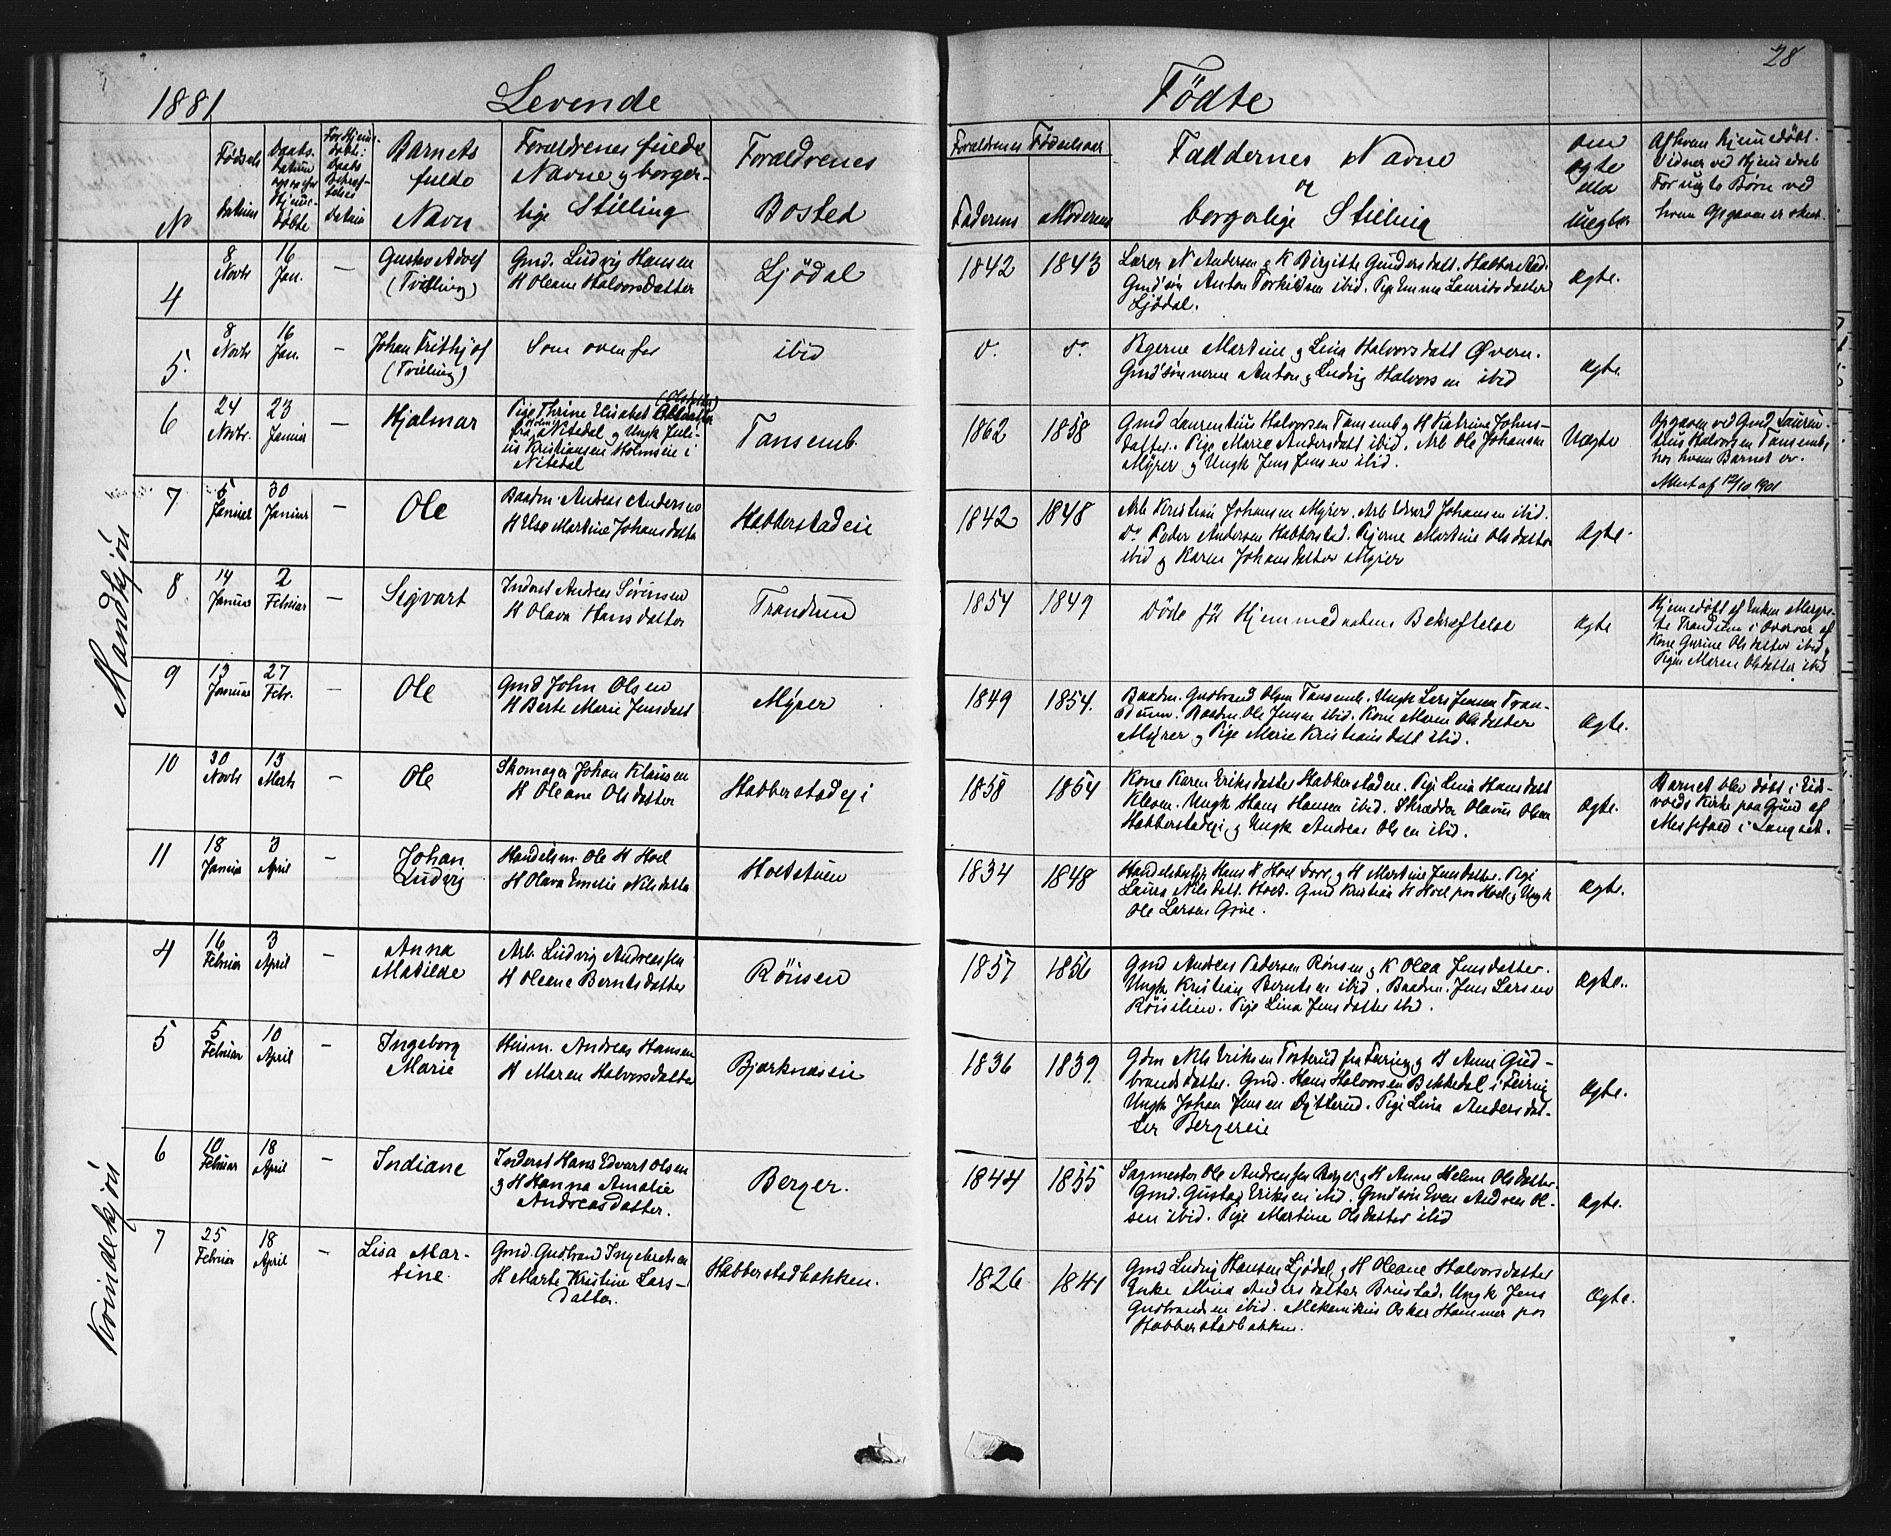 28
1881 Levende Födte
No
Fødsels Datum
Barnets fulde Navn
Forældrenes fulde Navne og borgerlige Stilling
Forældrenes Bosted
Forældrenes Fødselsaar
Faderens Moderens
Faddernes Navne og borgerlige Stilling
om ægte eller uægte
Mandkjön
4
8 Novbr
16 Jan.
—
Gustav Adolf (Tvilling)
Gmd. Ludvig Hansen
H Oleane Halvorsdatter
Ljödal
1842
1843
Lærer N Andersen & K Birgitte Gundersdatt. Habberstad.
Gmd'søn Anton Torkildsen ibid. Pige Emma Lauritsdatter
Ljödal.
Ægte.
5.
8 Novbr
16 Jan.
—
Johan Frithjof (Tvilling)
Som ovenfor
ibid
d.
d.
Pigerne Martine og Lina Halvorsdatt Øvern.
Gmd'sønnerne Anton og Ludvig Halvorsen ibid
Ægte.
6
24 Novbr.
23 Januar
—
Hjalmar
Pige Thrine Elisabet (Olsdatter)
fra Nitedal og Ungk. Juli-
us Kristiansen Holmseie i
Nitedal
Tansemb.
1862
1858
Gmd Laurentius Halvorsen Tansemb og H Katrine Johans-
datter. Pige Marie Andersdatt ibid. Arb. Ole Johansen
Myrer og Ungk Jens Jensen ibid.
Uægte
Opgaven ved Gmd Lauren-
tius Halvorsen Tansemb,
hos hvem Barnet er.
Attest af 12/10 1901
7
5 Januar
30 Januar
—
Ole
Baadm. Andreas Andersen
H Else Martine Johansdatter
Habberstadeie
1842
1848
Arb Kristian Johansen Myrer. Arb Edvard Johansen ibid.
Do Peder Andersen Habberstad. Pigerne Martine Olsdatter
ibid og Karen Johansdatter Myrer
Ægte.
8
14 Januar
2 Februar
—
Sigvart
Inderst Andreas Sørensen
H Olava Hansdatter
Trandum
1854
1849
Døde før Hjemmedaabens Bekræftelse
Ægte
Hjemmedøbt af Enken Margre-
te Trandum i Overvær af
Kone Gurine Olsdatter ibid og
Pigen Maren Olsdatter ibid
9
13 Januar
27 Febr.
—
Ole
Gmd John Olsen
H Berte Marie Jensdatt
Myrer
1849
1854.
Baadm. Gudbrand Olsen Tansemb. Ungk Lars Jensen Tran-
dum. Baadm. Ole Jensen ibid. Kone Maren Olsdatter
Myrer og Pige Marie Kristiansdatt ibid.
Ægte.
10
30 Novbr
13 Marts
—
Ole
Skomager Johan Klausen
H Oleane Olsdatter
Habberstadeji
1858
1854
Kone Karen Eriksdatter Habberstadeie. Pige Lina Hansdatt
Kleven. Ungk Hans Hansen ibid. Skrædder Olavus Olsen
Habberstadeji og Ungk Andreas Olsen ibid.
Ægte.
Barnet blev døbt i Eid-
volds Kirke paa Grund af
Messefald i Langset.
11
18 Januar
3 April
—
Johan Ludvig
Handelsm. Ole H Hoel
H Olava Emelie Nilsdatter
Holtstuen
1834
1848
Laura Nilsdatt. Holt. Gmd Kristian H Hoel paa Hoel og Ungk
Ole Larsen Grue.
Ægte.
Kvindekjön
4
16 Februar
3 April
—
Anna Matilde
Arb. Ludvig Andreassen
H Oleane Berntsdatter
Röisen
1857
1856
Gmd Andreas Pedersen Rönsen og K Olea Jensdatter.
Ungk Kristian Berntsen ibid. Baadm. Jens Larsen
Röisilien. Pige Lina Jensdatter ibid.
Ægte.
5
5 Februar
10 April
—
Ingeborg Marie
Husm. Andreas Hansen
H Maren Halvorsdatter
Bjørknæseie
1836
1839
Gdm Nils Eriksen Tosterud fra Feiring og H Anne Gud-
brandsdatter. Gmd. Hans Halvorsen Bekkedal i Feiring
Ungk Johan Jensen Dytterud. Pige Lina Andersdat-
ter Bergereie
Ægte.
6
10 Februar
18 April
—
Indiane
Inderst Hans Edvart Olsen
og H Hanna Amalie
Andreasdatter.
Berger.
1844
1855
Sagmester Ole Andreassen Berger og H Anne Helene Olsdatter.
Gmd. Gustav Eriksen ibid. Gmd'søn Even Andreas Ol-
sen ibid. Pige Martine Olsdatter ibid
Ægte.
7
25 Februar
18 April
—
Lisa Mar-
tine.
Gmd. Gudbrand Ingebretsen
H Marte Kristine Lars-
datter.
Habberstadbakken.
1826
1841
Gmd Ludvig Hansen Ljödal og H Oleane Halvorsdatter
Enke Mina Andersdatter Brustad. Ungk Jens
Gudbrandsen ibid. Mekanikus Oskar Hammer paa
Habberstadbakken.
Ægte.